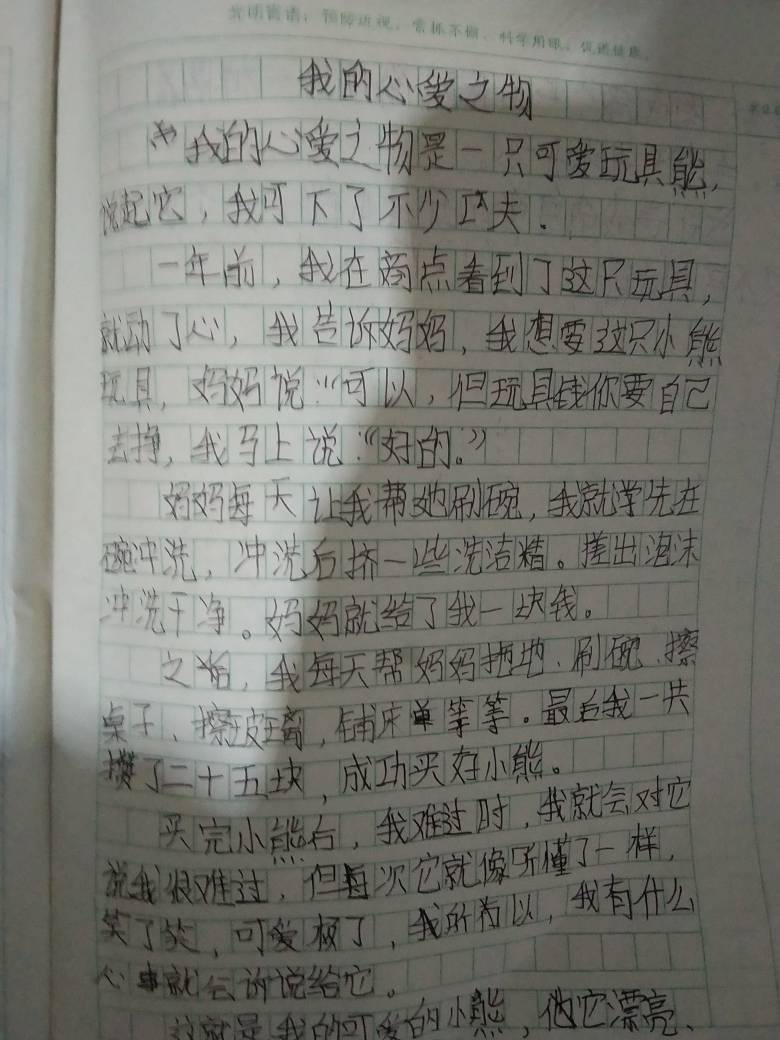 光明寄语：预防近视，常抓不懈，科学用眼，促进健康。
我的心爱之物
我的心爱之物是一只可爱玩具熊，
说起它，我可下了不少功夫．
一年前，我在商点看到了这只玩具，
就动了心，我告诉妈妈，我想要这只小熊
玩具，妈妈说：“可以，但玩具钱你要自己
去挣，我马上说：“好的。”
妈妈每天让我帮她刷碗，我就学先在
碗冲洗，冲洗后挤一些洗洁精。搓出泡沫
冲洗干净。妈妈就给了我一块钱。
之后，我每天帮妈妈拖地、刷碗、擦
桌子、擦玻璃，铺床单等等。最后我一共
攒了二十五块，成功买好小熊。
买完小熊后，我难过时，我就会对它
说我很难过，但每次它就像听懂了一样，
笑了笑，可爱极了，我所有以，我有什么
心事就会诉说给它。
这就是我的可爱的小熊，它漂亮、